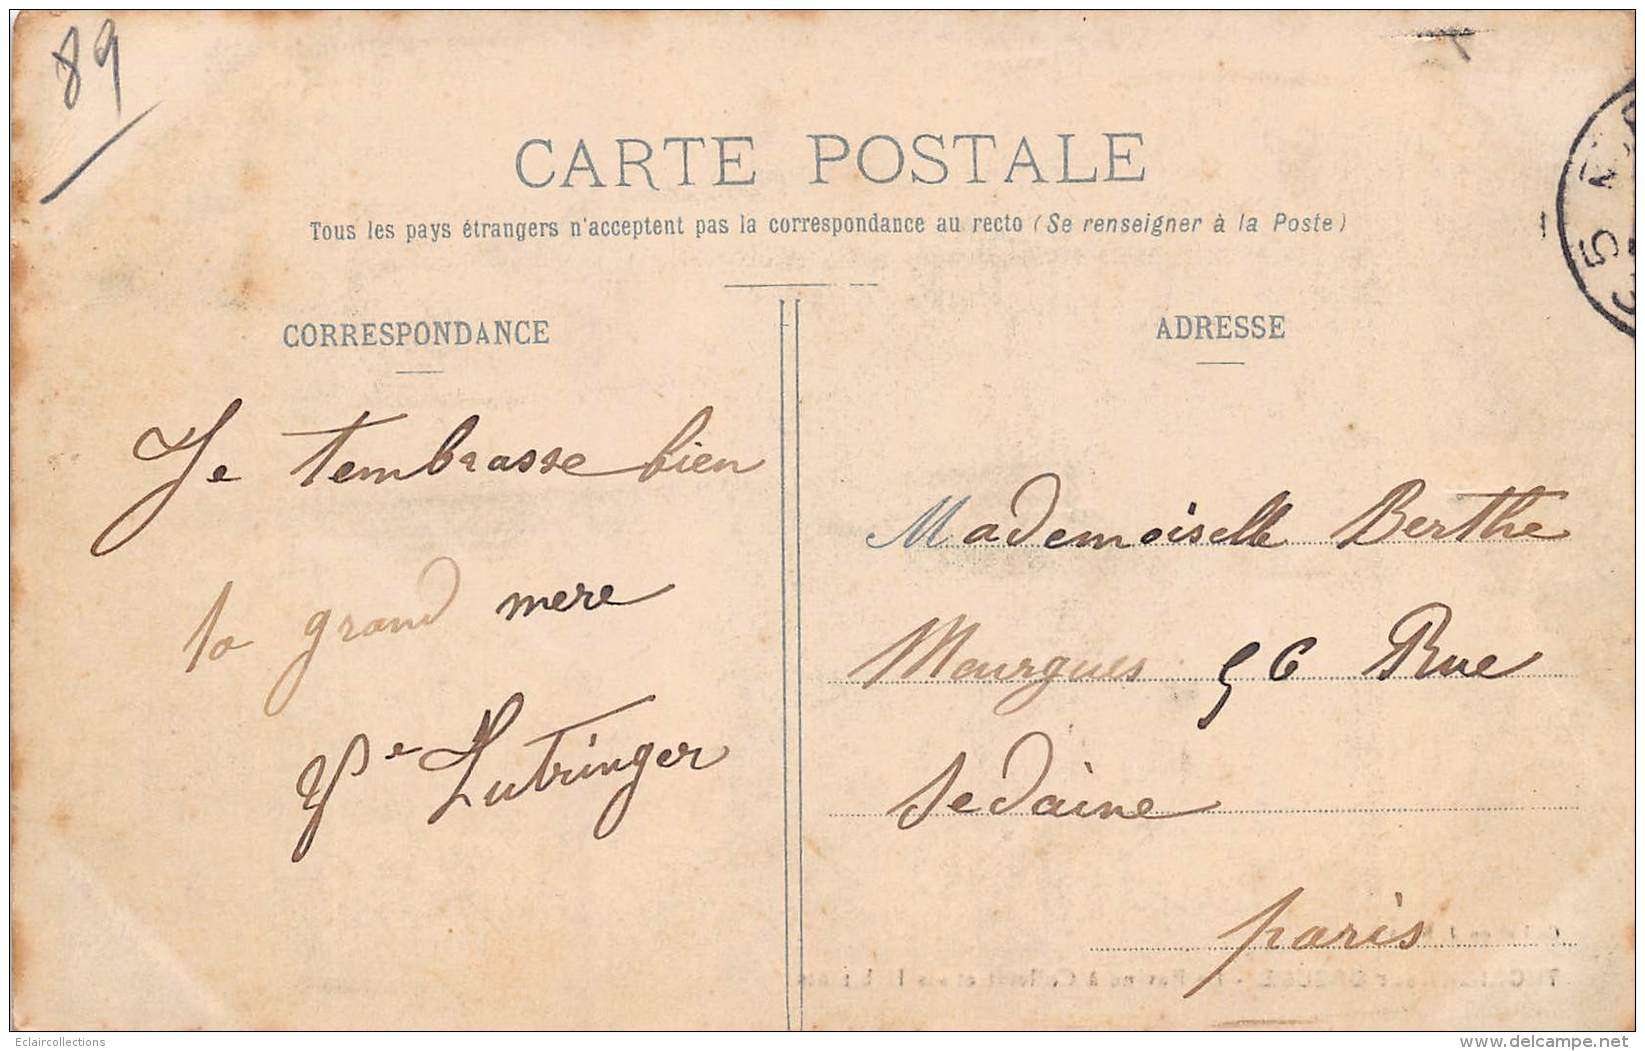 89
CARTE POSTALE
Tous les pays étrangers n'acceptent pas la correspondance au recto (Se renseigner à la Poste)
CORRESPONDANCE
Je tembrasse bien
ta grand mere
Ve Lutringer
ADRESSE
Mademoiselle Berthe
Mourgues 56 Rue
Sedaine
paris
Eclaircollections
www.delcampe.net